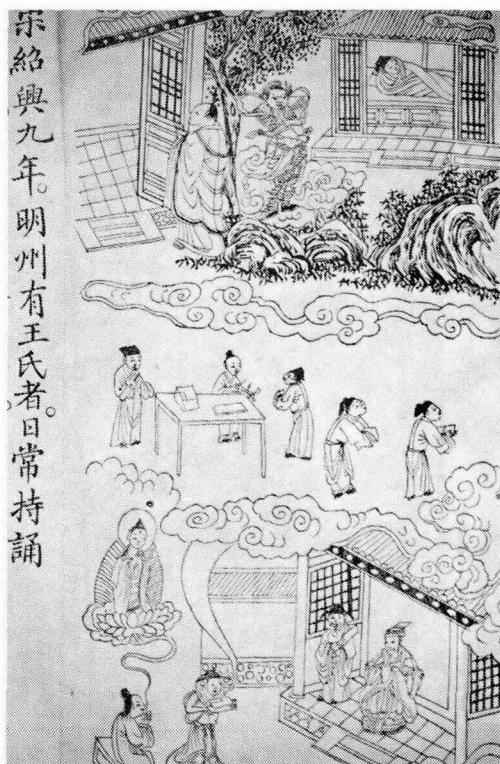 宋紹興九年。明州有王氏者。日常持誦